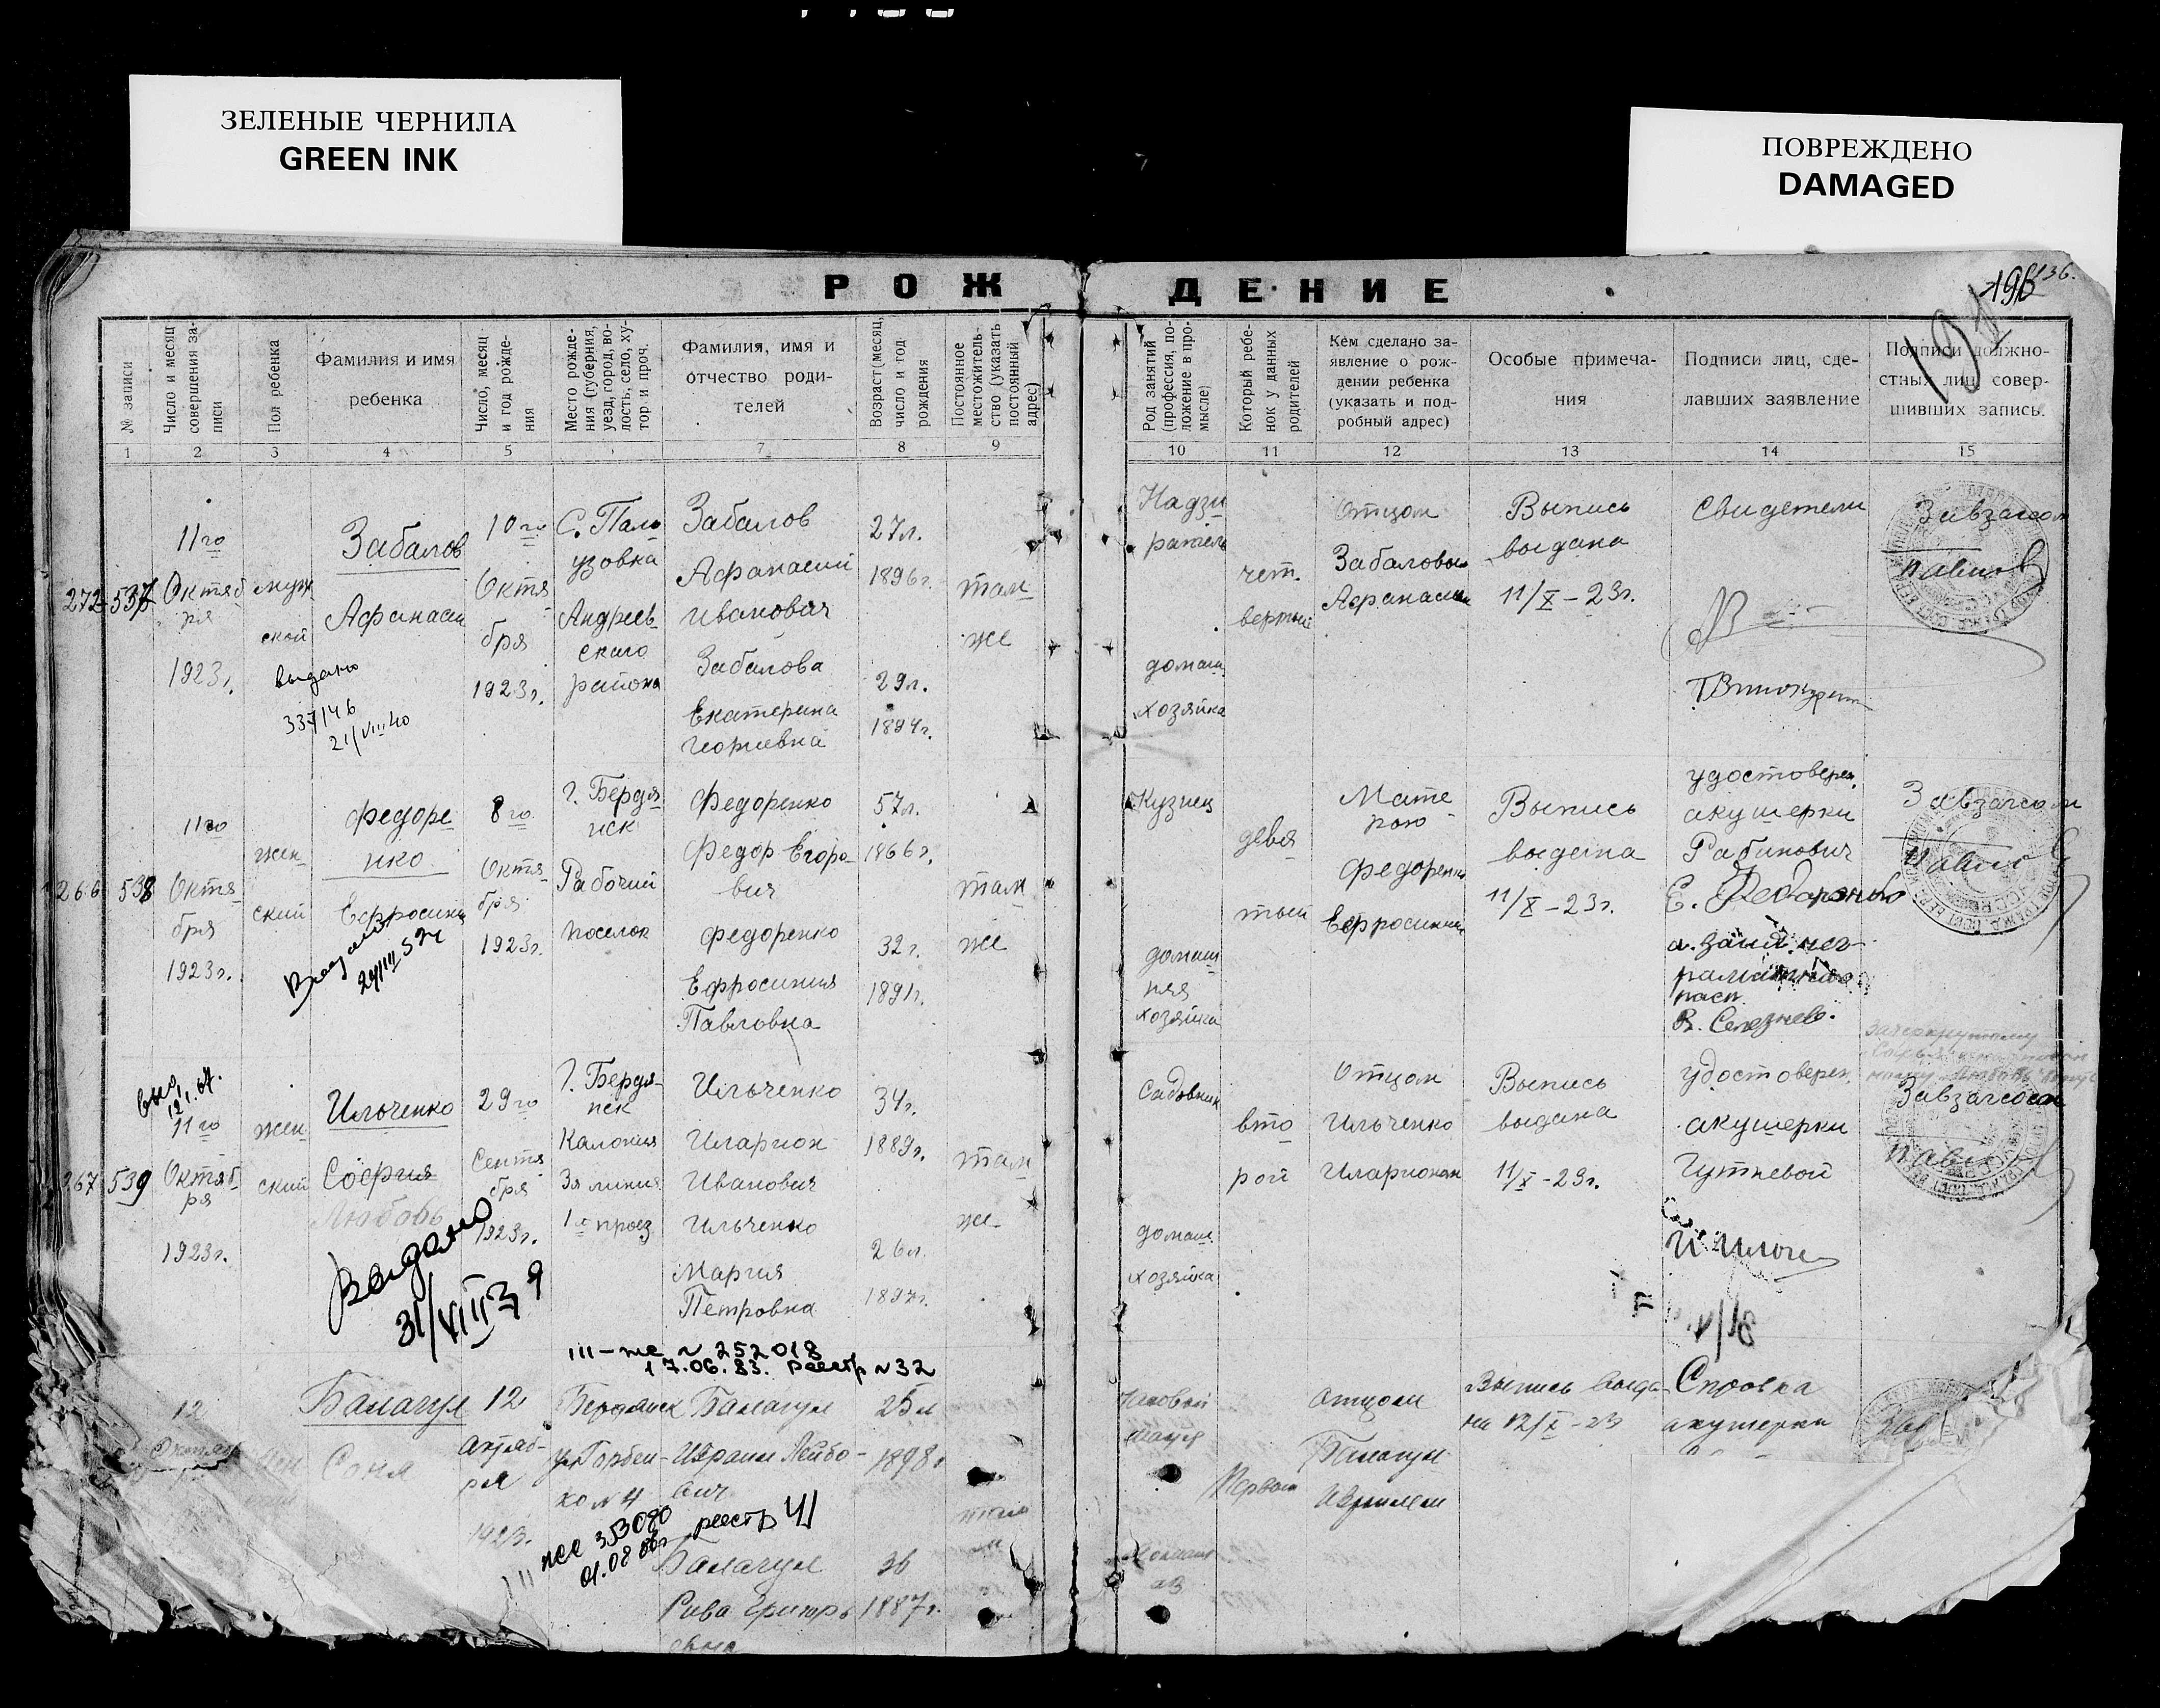 ЗЕЛЕНЫЕ ЧЕРНИЛА
GREEN INK
ПОВРЕЖДЕНО
DAMAGED
РОЖДЕНИЕ
136.
№ записи
Число и месяц
совершения за-
писи
Пол ребенка
Фамилия и имя
ребенка
Число, месяц
и год рожде-
ния
Место рожде-
ния (губерния,
уезд, город, во-
лость, село, ху-
тор и проч.
Фамилия, имя и
отчество роди-
телей
Возраст (месяц,
число и год
рождения
Постоянное
местожитель-
ство (указать
постоянный
адрес)
Род занятий
(профессия, по-
ложение в про-
мысле)
Который ребе-
нок у данных
родителей
Кем сделано за-
явление о рож-
дении ребенка
(указать и под-
робный адрес)
Особые примеча-
ния
Подписи лиц, сде-
лавших заявление
Подписи должно-
стных лиц, совер-
шивших запись.
1 2 3 4 5 7 8 9 10 11 12 13 14 15
272
537
11го
Октяб
ря
1923г.
муж
ской
Забалов
Афанасий
выдано
337146
21/VIII 40
10го
Октя
бря
1923г.
С. Пал
узовка
Андреев
скаго
района
Забалов
Афанасий
Иванович
Забалова
Екатерина
Георгиевна
27л.
1896г.
29л.
1894г.
там
же
Надзи
ратель
домаш
хозяйка
чет.
вертый
Отцом
Забаловым
Афанасием
Выпись
выдана
11/X – 23г.
Свидетели
Завзагсом
266
538
11го
Октя
бря
1923г.
жен-
ский
Федоре
нко
Ефросиния
Выдано
29/III 59г
8го
Октя-
бря
1923г.
г. Бердя
нск
Рабочий
поселок
Федоренко
Федор Егоро-
вич
Федоренко
Ефросиния
Павловна
57л.
1866г.
32г.
1891г.
там
же
Кузнец
домаш
няя
хозяйка
девя
тый
Мате
рью
Федоренко
Ефросинией
Выпись
выдана
11/X – 23г.
удостоверен.
акушерки
Рабинович
Е. Федоренко
а. за ней нег-
расп.
В. Селезнев.
Завзагсом
267
539
12.I.67.
11го
Октяб
ря
1923г.
жен
ский
Ильченко
София
Любовь
Выдано
31/VIII 39
29го
Сентя
бря
1923г.
г. Бердя-
нск
Калония
3я линия
1й проез.
Ильченко
Иларион
Иванович
Ильченко
Мария
Петровна
34г.
1889г.
26л.
1897г.
там
же
Садовник
домаш.
хозяйка
вто
рой
Отцом
Ильченко
Иларионом
Выпись
выдана
11/X – 23г.
удостоверен.
акушерки
Гутневой
Завзагсом
III – же № 252018
17.06.83. реестр №32
12
Октябр
Балагул
Соня
12
октяб-
ря
1923.
Бердянск
ул. Горбен-
ко №4
Балагул
Израил Лейбо-
вич
Балагул
Рива Григорь
евна
25 л
1898г
36
1887г.
III же 353080
реестр 41
Первый
отцом
Балагул
Израилем
Выпись выда-
на 12/X – 23
Справка
акушерки